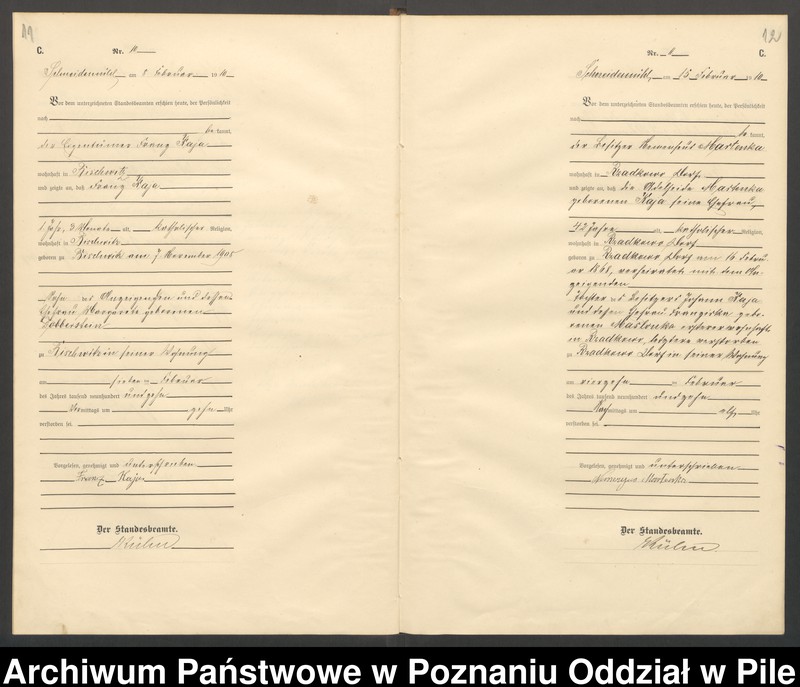 11
C.
Nr. 10
Schneidemühl am 8 Februar 1910
Vor dem unterzeichneten Standesbeamten erschien heute, der Persönlichkeit
nach
be kannt,
der Eigentümer Franz Kaja
wohnhaft in
und zeigte an, daß Franz Kaja
1 Jahr, 3 Monate alt, katholischer Religion,
wohnhaft in
geboren zu am 7 November 1908
Sohn des Anzeigenden und dessen
Ehefrau Margarete geborenen
zu in seiner Wohnung
am sieben ten Februar
des Jahres tausend neunhundert und zehn
Vormittags um zehn Uhr
verstorben sei.
Vorgelesen, genehmigt und unterschrieben
Franz Kaja
Der Standesbeamte.
12
Nr. 11
C.
Schneidemühl, am 15 Februar 1910
Vor dem unterzeichneten Standesbeamten erschien heute, der Persönlichkeit
nach
be kannt,
der Besitzer Marlenka
wohnhaft in Rzadkowo Dorf
und zeigte an, daß die Adelheide Marlenka
geborenen Kaja seine Ehefrau,
42 Jahre alt, katholischer Religion,
wohnhaft in Rzadkowo Dorf
geboren zu Rzadkowo Dorf am 16 Febru
ar 1868, verheiratet mit dem An-
zeigenden
Tochter des Besitzers Johann Kaja
und dessen Ehefrau Franziska gebo-
renen ersterer wohnhaft
in Rzadkowo, letztere verstorben
zu Rzadkowo Dorf in seiner Wohnung
am vierzehn ten Februar
des Jahres tausend neunhundert und zehn
Nachmittags um elf Uhr
verstorben sei.
Vorgelesen, genehmigt und unterschrieben
Marlenka
Der Standesbeamte.
Archiwum Państwowe w Poznaniu Oddział w Pile